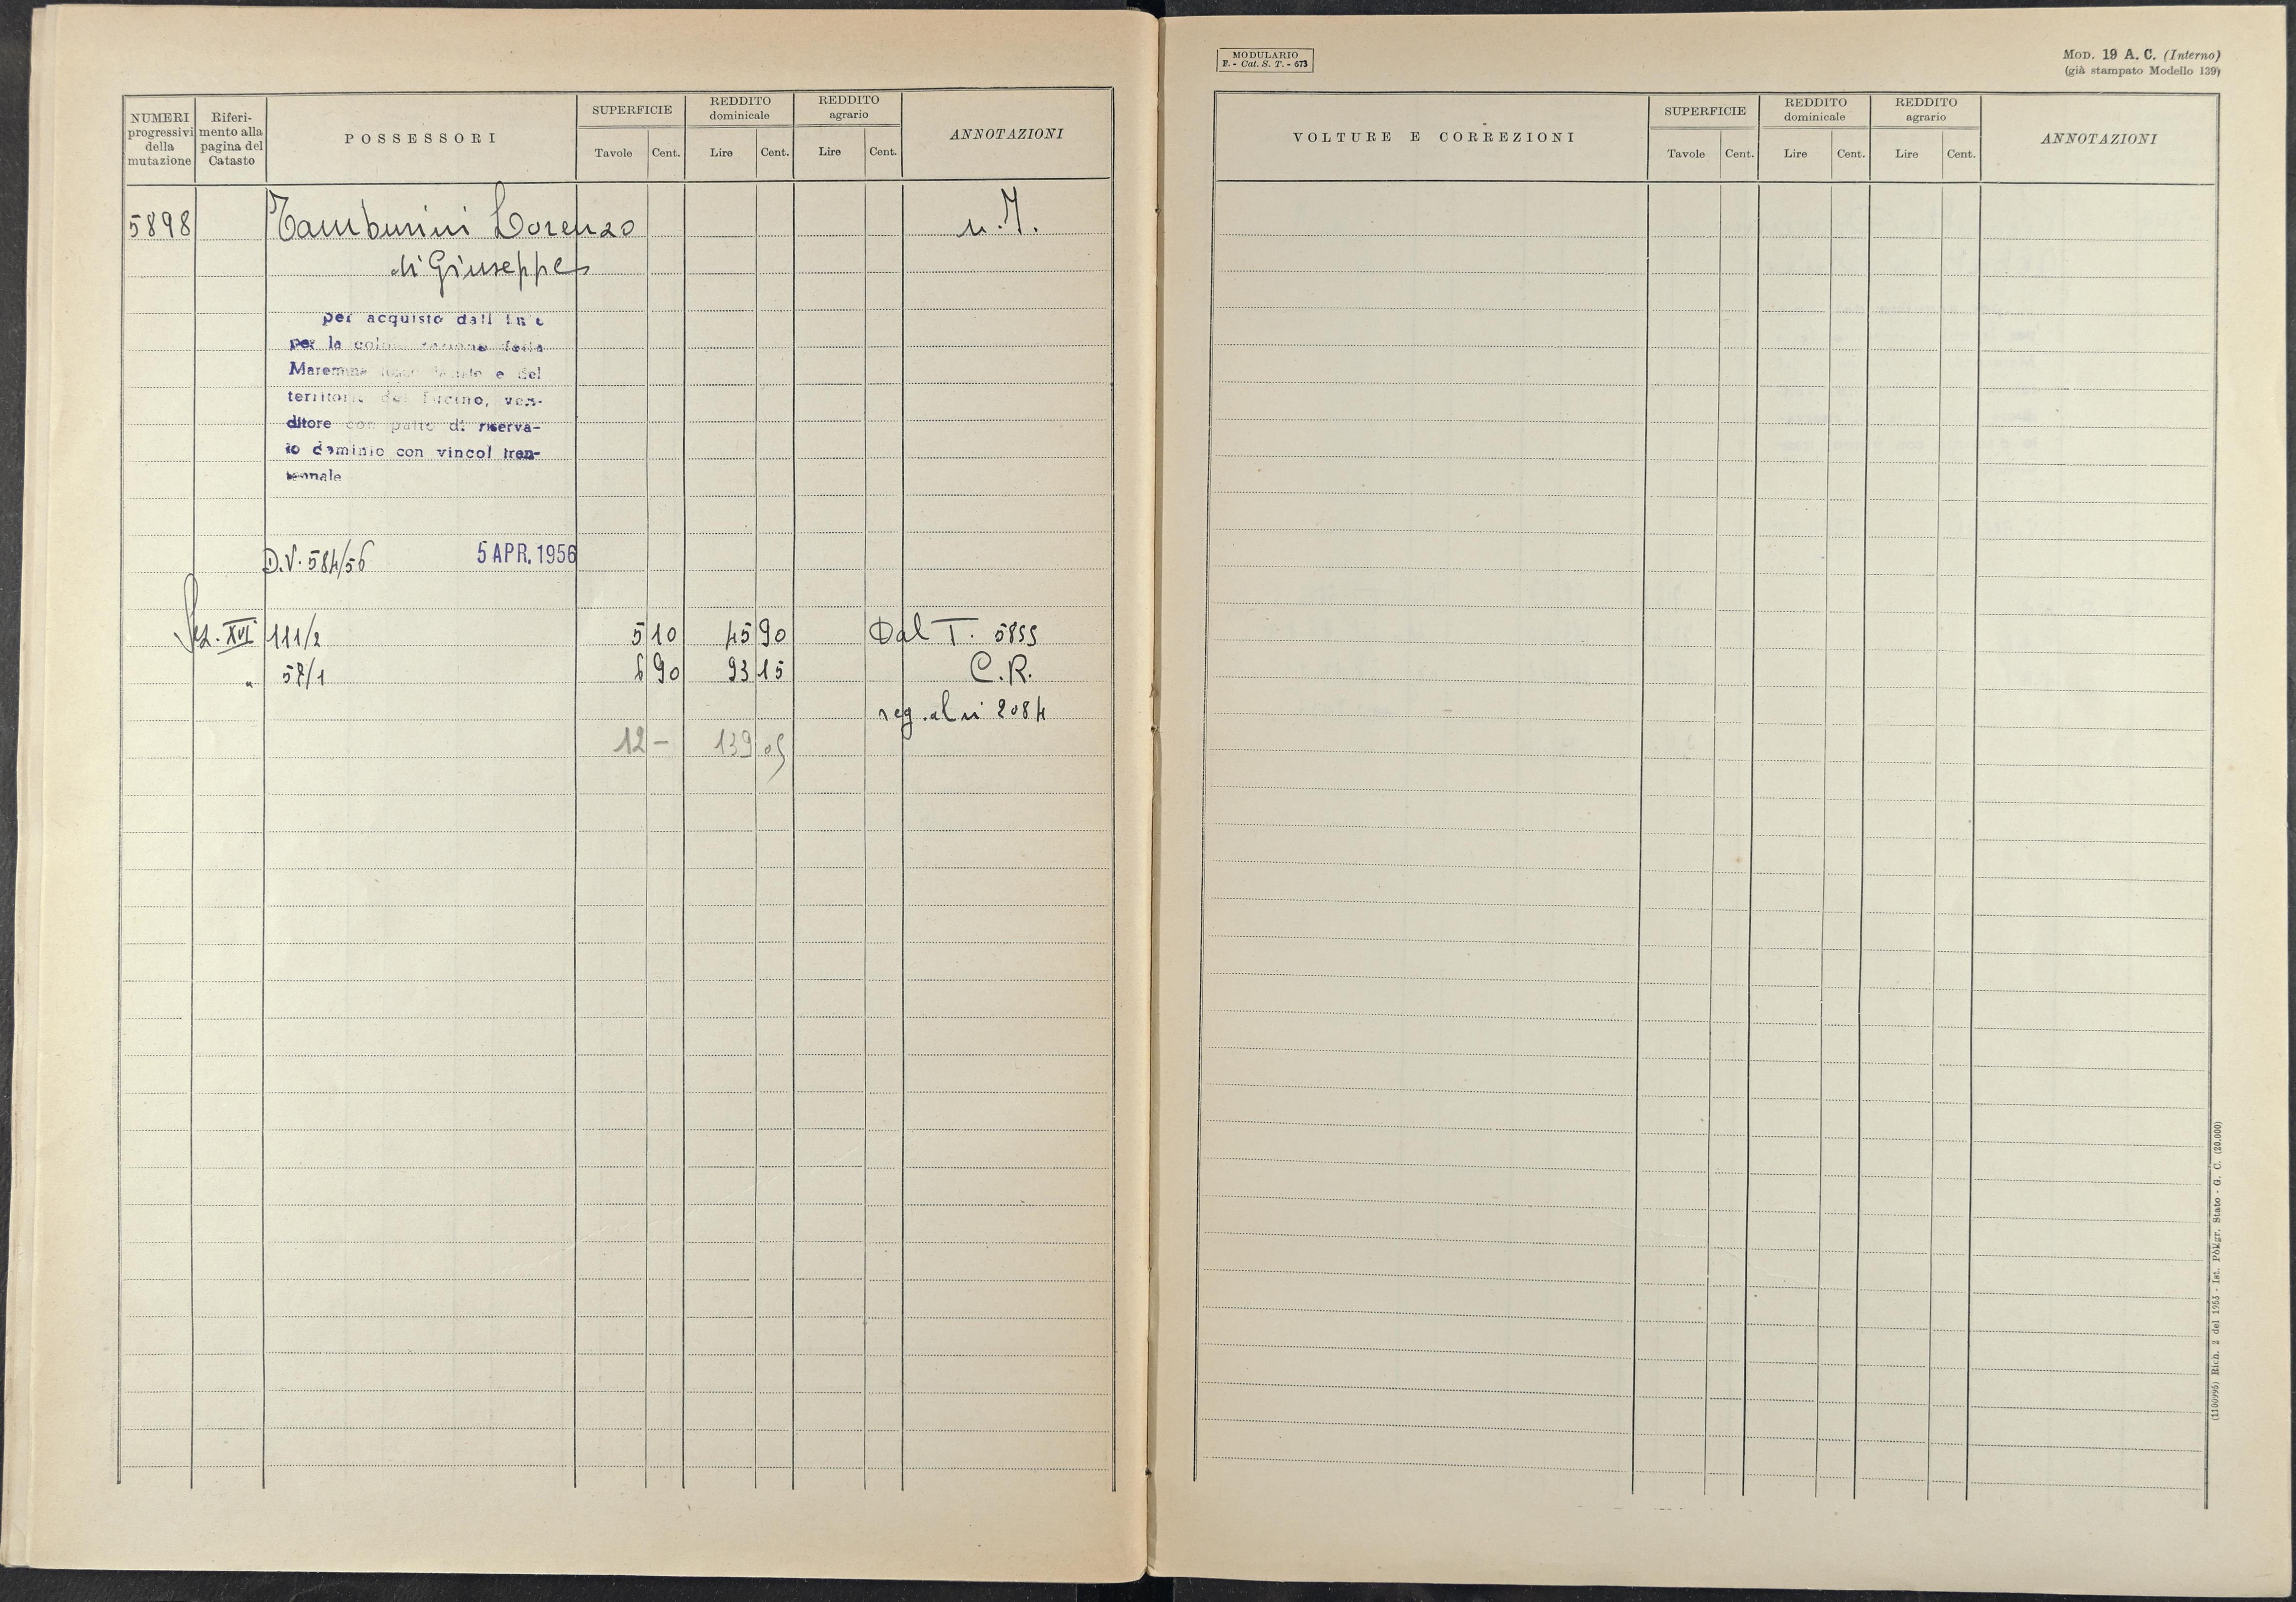 NUMERI progressivi della mutazione
Riferi- mento alla pagina del Catasto
POSSESSORI
SUPERFICIE
Tavole Cent.
REDDITO dominicale
Lire Cent.
REDDITO agrario
Lire Cent.
ANNOTAZIONI
5898 Tamburini Lorenzo n.I.
di Giuseppe
per acquisto dall
per la della
Maremma e del
territorio del Fucino, ven-
ditore con patto di riserva-
to dominio con vincol tren-
tennale
D.V. 584/56 5 APR. 1956
Sez. XVI 111/2 5 10 45 90 Dal T. 5855
" 57/1 6 90 93 15 C.R.
reg. al n 2084
12 - 139 05
MODULARIO
F. - Cat. S. T. - 673
MOD. 19 A. C. (Interno)
(già stampato Modello 139)
VOLTURE E CORREZIONI
SUPERFICIE
Tavole Cent.
REDDITO dominicale
Lire Cent.
REDDITO agrario
Lire Cent.
ANNOTAZIONI
(1100995) Rich. 2 del 1953 - Ist. Poligr. Stato - G. C. (20.000)